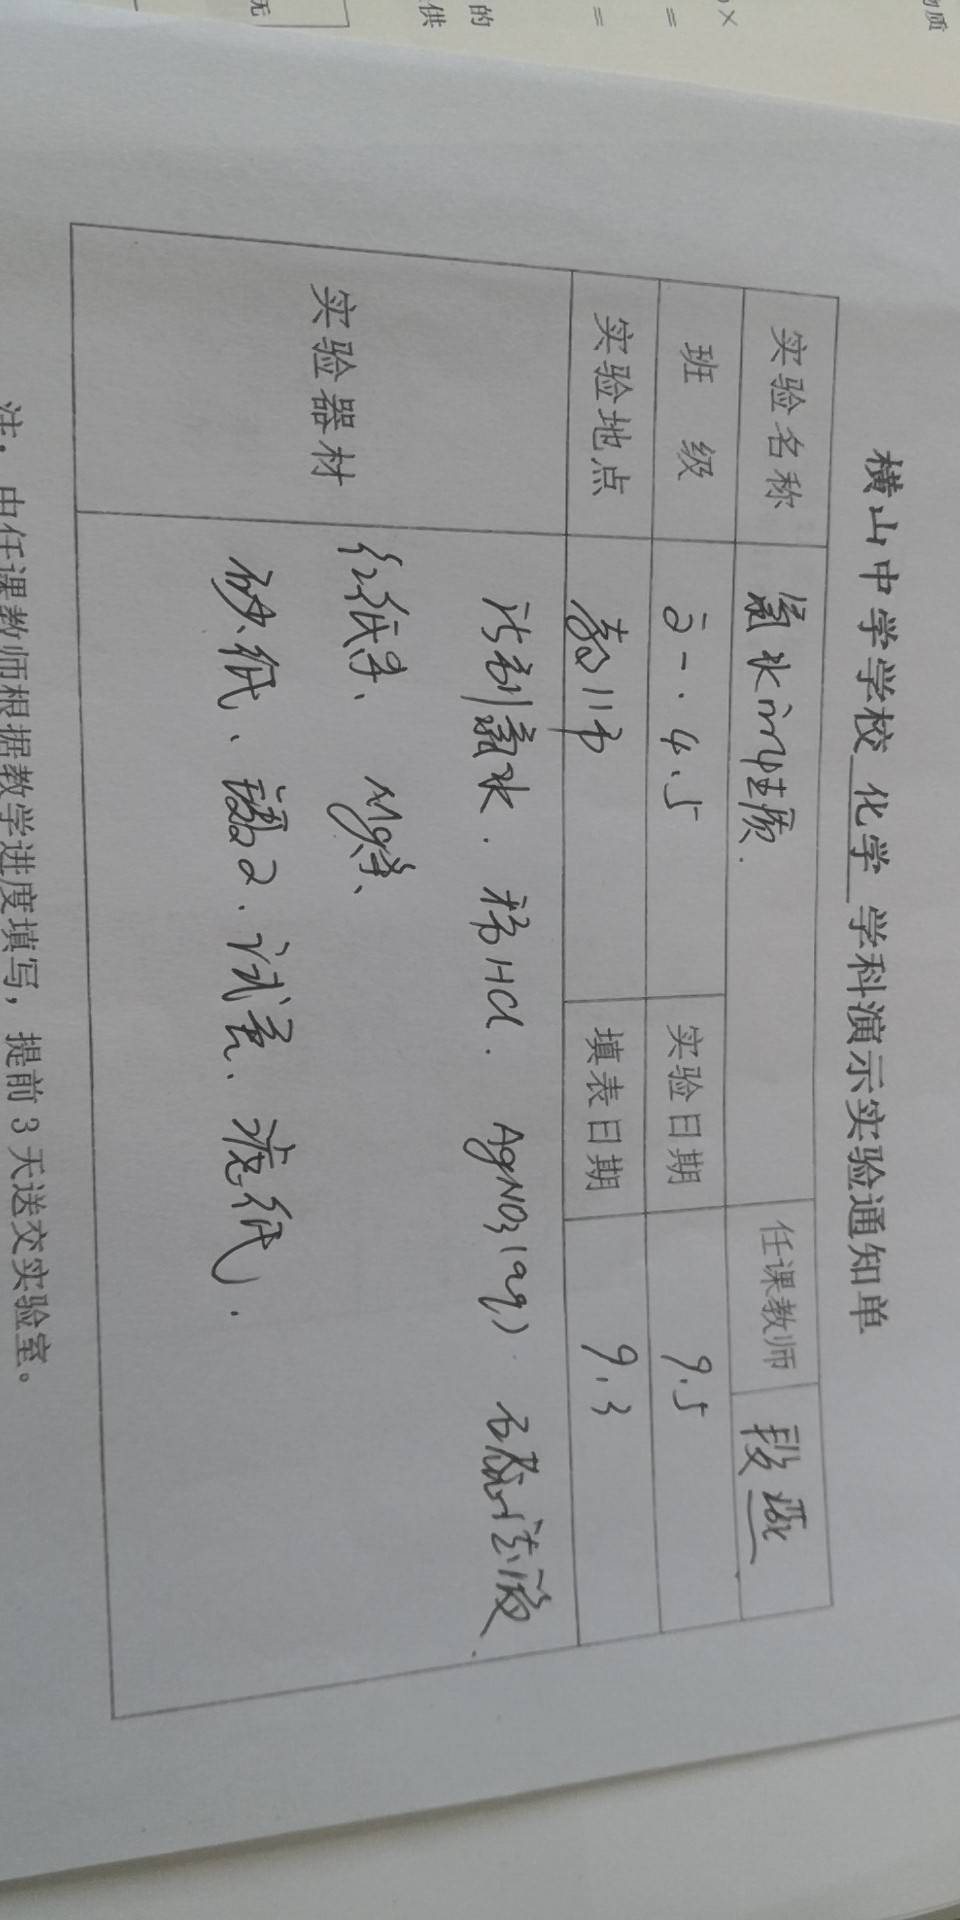 横山中学学校 化学 学科演示实验通知单
实验名称 氯水的性质. 任课教师 段
班 级 2-.4.5 实验日期 9.5
实验地点 实验日期 填表日期 9.3
实验器材
新制氯水. 稀HCl. AgNO3(aq). 石蕊试液.
红纸条、 Mg条、
砂纸、 镊子. 试管. 滤纸.
注：由任课教师根据教学进度填写，提前 3 天送交实验室。